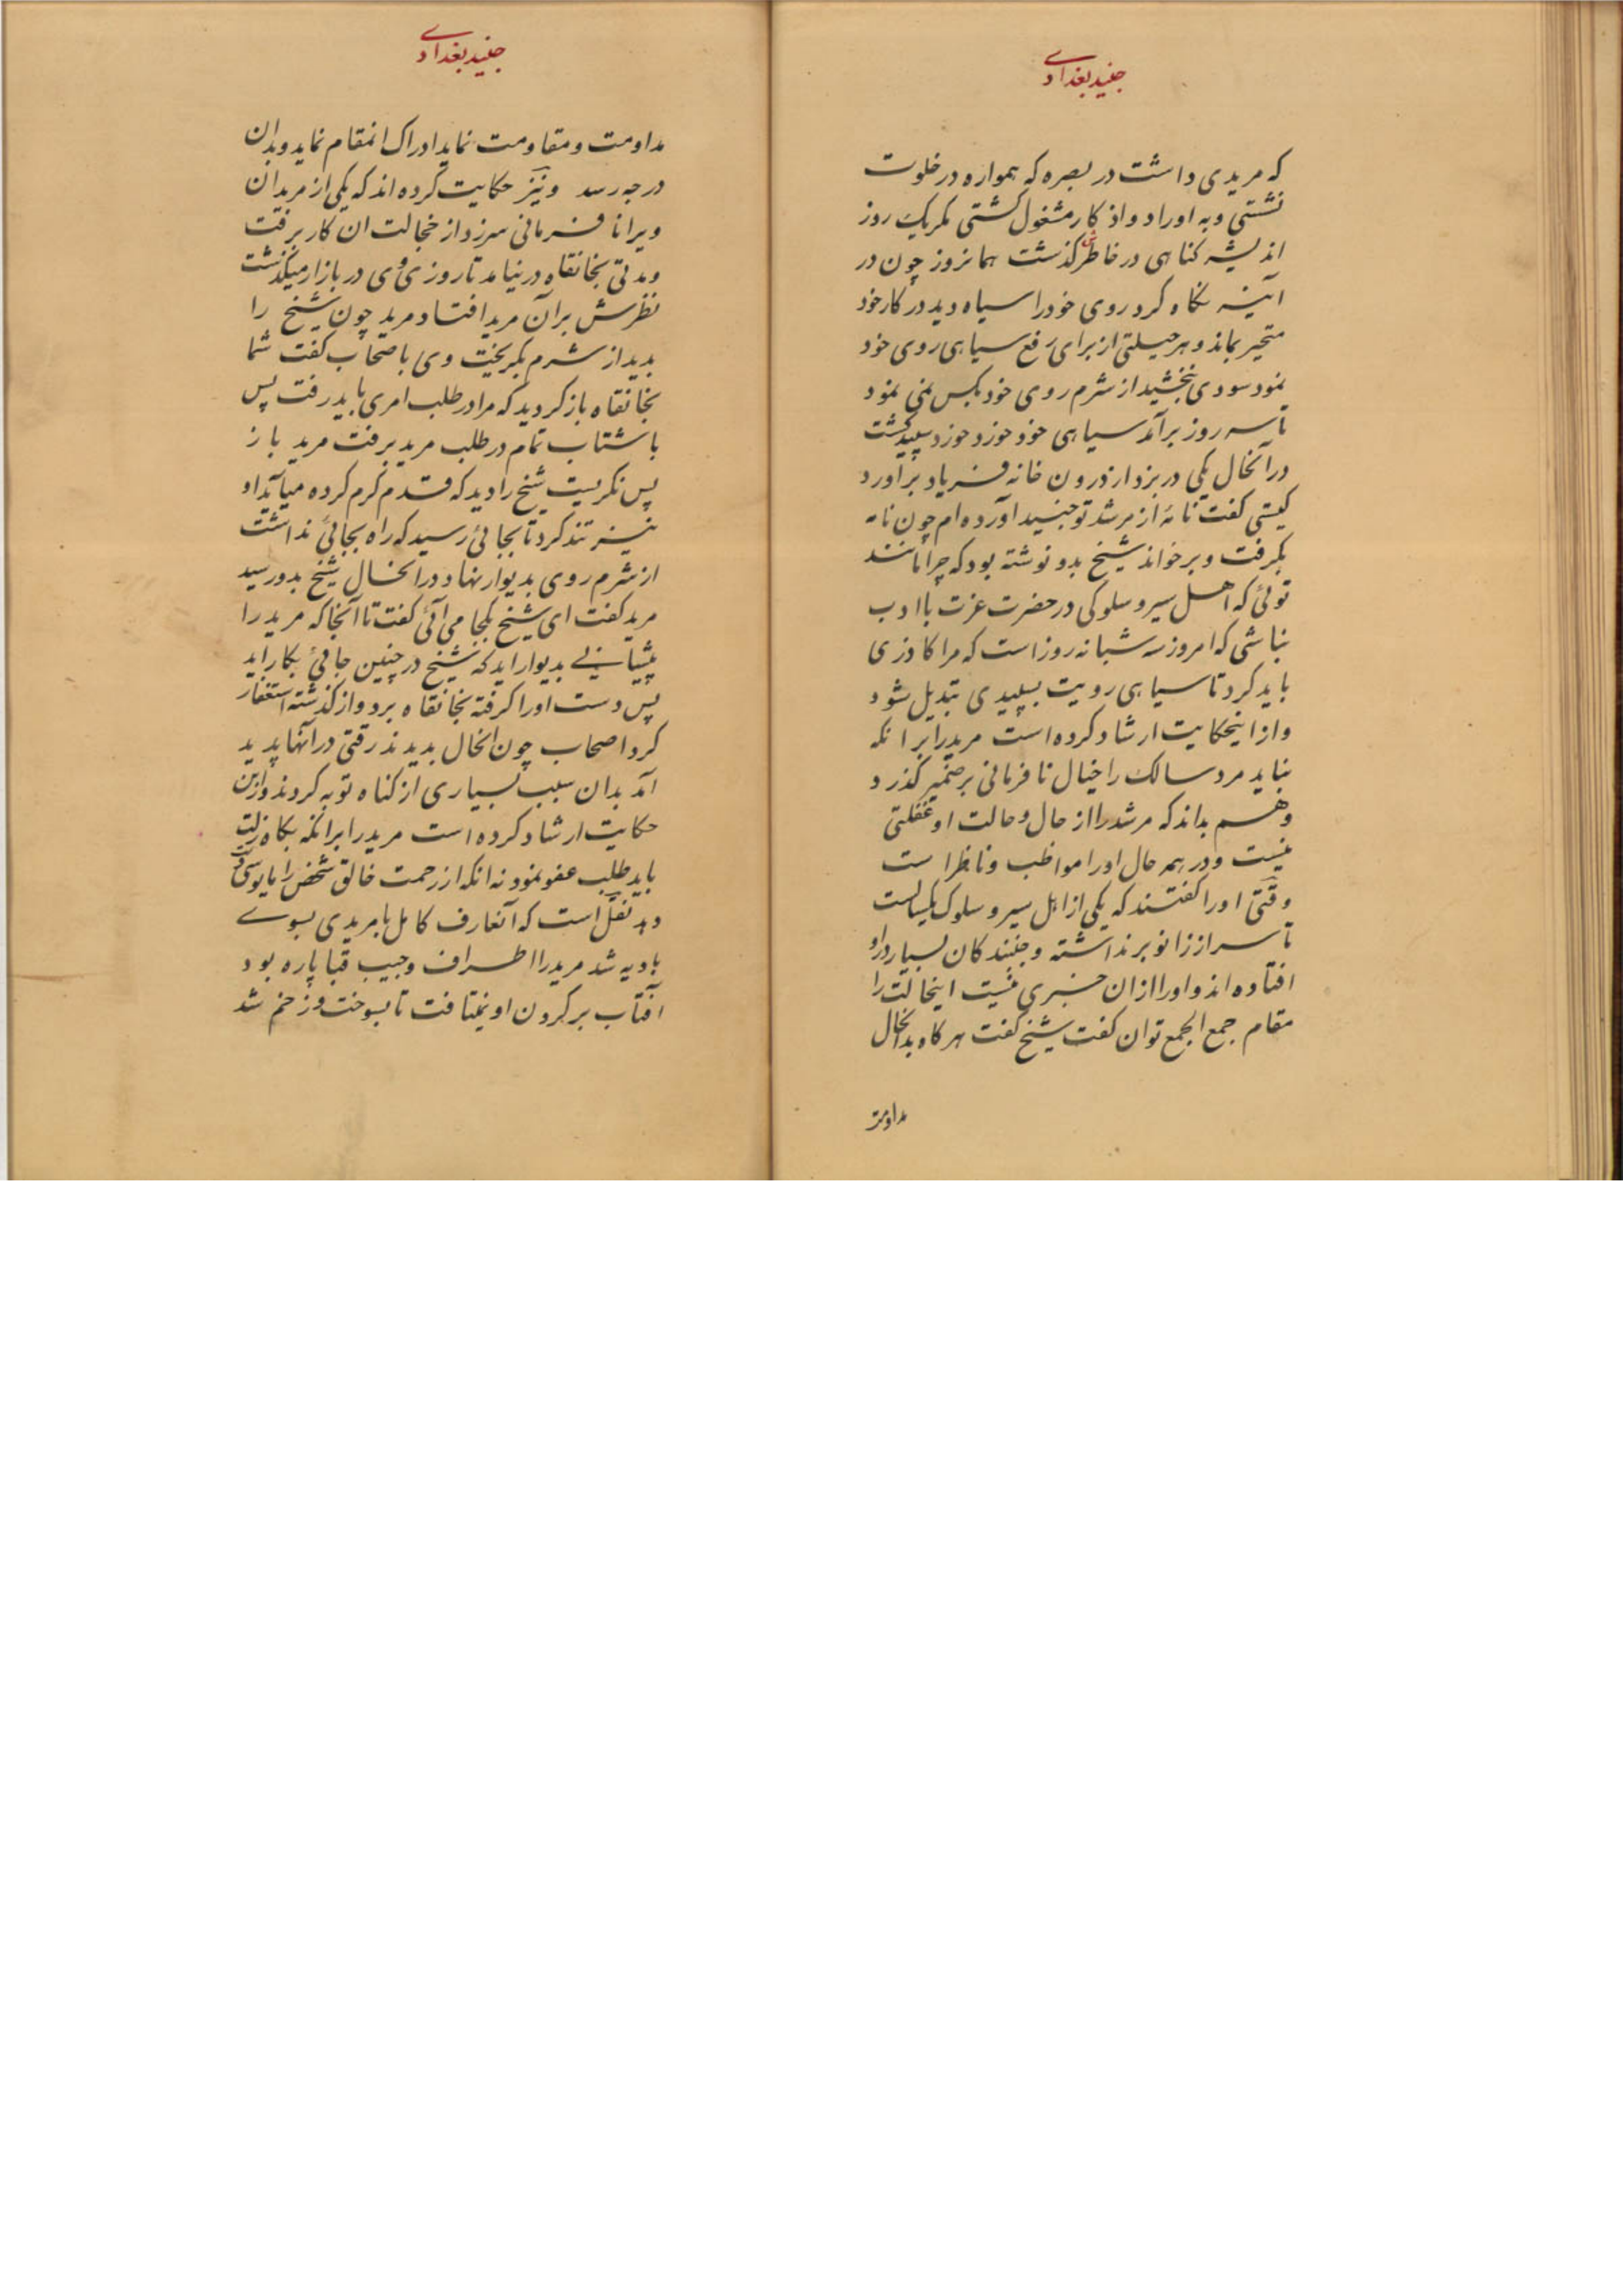 جنید بغدادے
که مریدی داشت در بصره که همواره در خلوت
نشستی وبه اوراد و اذکار مشغول کشتی مکر یک روز
اندیشه کناهی در خاطرش کذشت همانروز چون در
آینه نکاه کرد روی خود را سیاه دید در کار خود
متحیر بماند و هر حیلتی از برای رفع سیاهی روی خود
نمود سودی نبخشید از شرم روی خود بکس نمی نمود
تا سه روز برآمد سیاهی خورد خورد سپید کشت
در آنحال یکی در بزد از درون خانه فریاد برآورد
کیستی کفت نامۀ از مرشد تو جنید آورده ام چون نامه
بکرفت و برخواند شیخ بدو نوشته بود که چرا مانند
توئی که اهل سیر و سلوکی در حضرت عزت با ادب
نباشی که امروز سه شبانه روز است که مرا کاذری
باید کرد تا سیاهی رویت بسپیدی تبدیل شود
و از اینحکایت ارشاد کرده است مرید را بر انکه
نباید مرد سالک را خیال نافرمانی بر ضمیر کذرد
و هم بداند که مرشد را از حال و حالت او غفلتی
نیست و در همه حال او را مواظب و ناظر است
وقتی او را کفتند که یکی از اهل سیر و سلوک یکسالست
تا سر از زانو برنداشته و جنبندکان بسیار در او
افتاده اند و او را از ان خبری نیست اینحالت را
مقام جمع الجمع توان کفت شیخ کفت هر کاه بدانحال
مداومت
جنید بغدادے
مداومت و مقاومت نماید ادراک انمقام نماید و بدان
درجه رسد و نیز حکایت کرده اند که یکی از مریدان
ویرا نافرمانی سرزد از خجالت ان کار برفت
و مدتی بخانقاه در نیامد تا روزی وی در بازار میکذشت
نظرش بر آن مرید افتاد مرید چون شیخ را
بدید از شرم بکریخت وی با صحاب کفت شما
بخانقاه باز کردید که مرا در طلب امری باید رفت پس
با شتاب تمام در طلب مرید برفت مرید باز
پس نکریست شیخ را دید که قدم کرم کرده میآید او
نیز تند کرد تا بجائی رسید که راه بجائی نداشت
از شرم روی بدیوار نهاد در انحال شیخ بدو رسید
مرید کفت ای شیخ بکجا می آئی کفت تا آنجا که مرید را
پیشیانے بدیوار اید که شیخ در چنین جائی بکار اید
پس دست او را کرفته بخانقاه برد و از کذشته استغفار
کرد اصحاب چون انحال بدیدند رقتی در آنها پدید
آمد بدان سبب بسیاری از کناه توبه کردند و ازین
حکایت ارشاد کرده است مرید را برانکه بکاه زلت
باید طلب عفو نمود نه انکه از رحمت خالق شخص را مایوسی
دهد نقل است که آنعارف کامل با مریدی بسوے
بادیه شد مرید را اطراف و جیب قبا پاره بود
آفتاب بر کردن او بتافت تا بسوخت و زخم شد